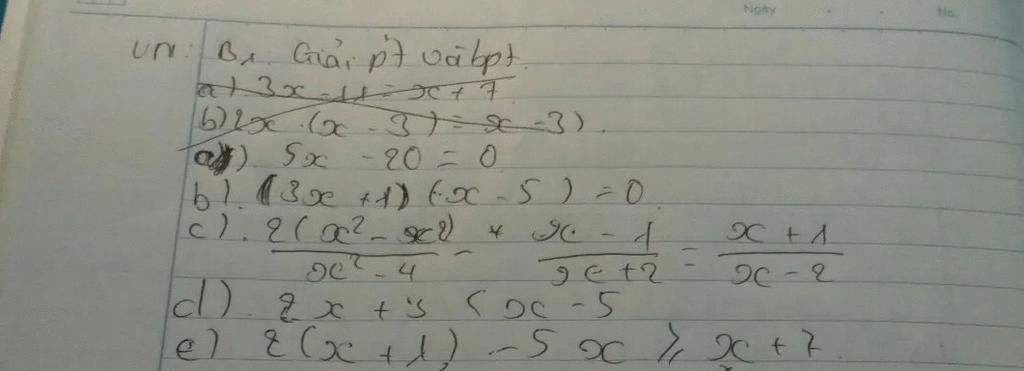 Ngày . . No.
VN: B1 Giải pt và bpt.
a) 3x - 11 = x + 7
b) 2x (x - 3) = x - 3).
a)). 5x - 20 = 0
b). (3x + 1) (x - 5) = 0
c). 2(x² - x2) / x² - 4 - x - 1 / x + 2 = x + 1 / x - 2
d). 2x + 3 < x - 5
e) 2(x + 1) - 5x ≥ x + 7.